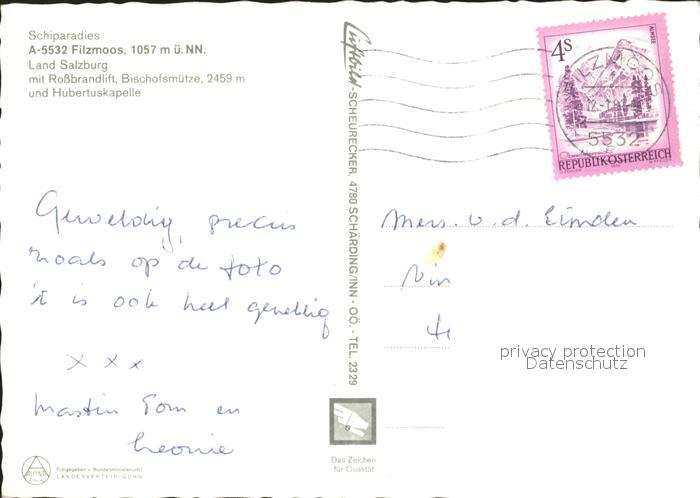 Schiparadies
A-5532 Filzmoos, 1057 m ü. NN.
Land Salzburg
mit Roßbrandlift, Bischofsmütze, 2459 m
und Hubertuskapelle
Geweldig, precies
zoals op de foto
't is ook heel gezellig
x x x
Martin Tom en
Leonie
Freigegeben v. Bundesministerium f.
LANDESVERTEIDIGUNG
Luftbild-SCHEURECKER, 4780 SCHÄRDING/INN - OÖ. - TEL. 2329
Das Zeichen
für Qualität
4s
ALMSEE
FILZMOOS
5532
REPUBLIK ÖSTERREICH
v. d.
privacy protection
Datenschutz